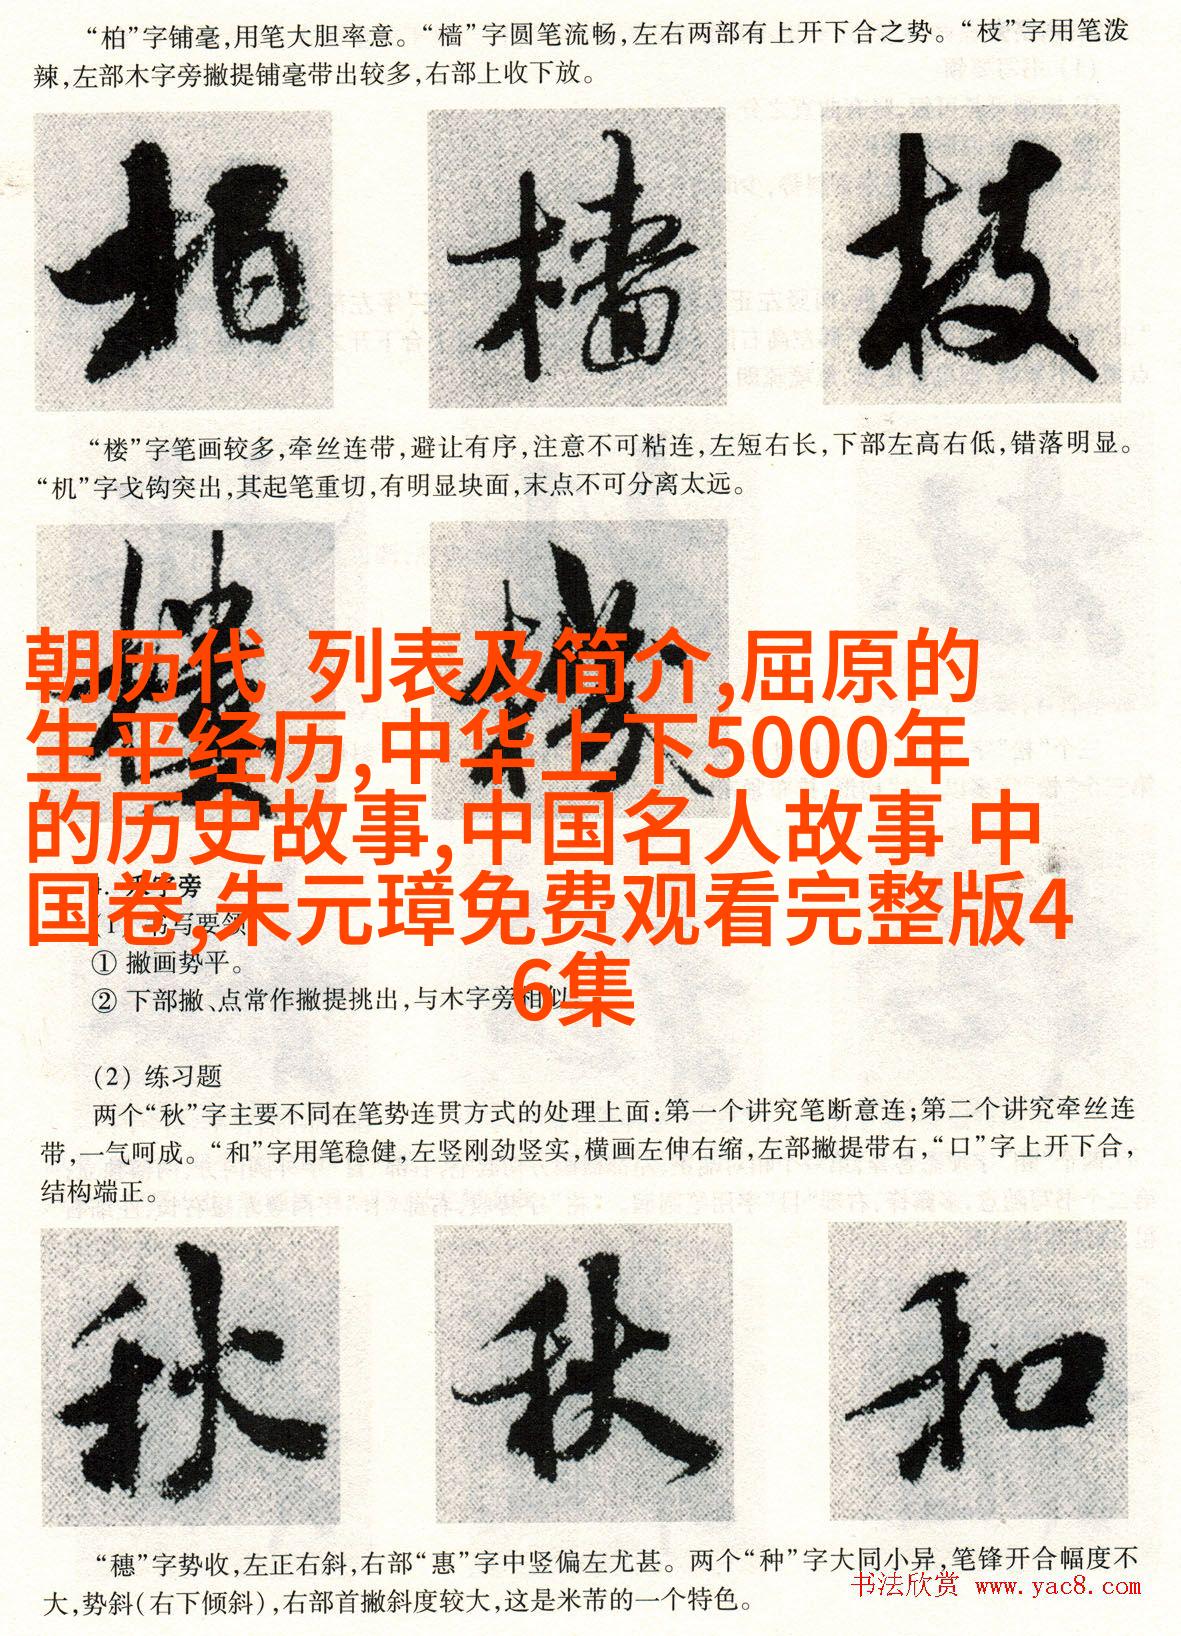 “柏”字铺毫,用笔大胆率意。“樯”字圆笔流畅,左右两部有上开下合之势。“枝”字用笔泼
辣,左部木字旁撇提铺毫带出较多,右部上收下放。
柏 樯 枝
“楼”字笔画较多,牵丝连带,避让有序,注意不可粘连,左短右长,下部左高右低,错落明显。
“机”字戈钩突出,其起笔重切,有明显块面,末点不可分离太远。
楼 机
朝历代 列表及简介,屈原的
生平经历,中华上下5000年
的历史故事,中国名人故事 中
国卷,朱元璋免费观看完整版4
6集
禾字旁
(1) 书写要领
① 撇画势平。
② 下部撇、点常作撇提挑出,与木字旁相似
(2) 练习题
两个“秋”字主要不同在笔势连贯方式的处理上面:第一个讲究笔断意连;第二个讲究牵丝连
带,一气呵成。“和”字用笔稳健,左竖刚劲竖实,横画左伸右缩,左部撇提带右,“口”字上开下合,
结构端正。
秋 秋 和
“穗”字势收,左正右斜,右部“惠”字中竖偏左尤甚。两个“种”字大同小异,笔锋开合幅度不
大,势斜(右下倾斜),右部首撇斜度较大,这是米芾的一个特色。
书法欣赏 www.yac8.com